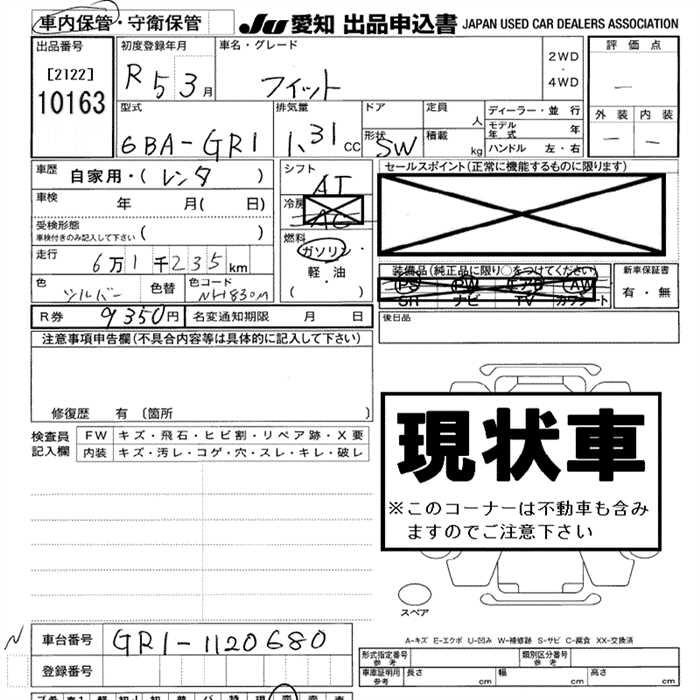 車内保管・守衛保管 JU 愛知 出品申込書 JAPAN USED CAR DEALERS ASSOCIATION
出品番号 初度登録年月 車名・グレード 評価点
[2122] R 5 3月 フィット 2WD・4WD —
10163
型式 排気量 ドア 定員 人 ディーラー・並行 外装 内装
6BA-GR1 1.31cc 形状 SW 積載 kg モデル年式 年 — —
ハンドル 左・右
車歴 自家用・(レンタ) シフト AT セールスポイント(正常に機能するものに限ります)
車検 年 月( 日) 冷房 AC
受検形態 燃料
車検付きのみ記入して下さい ( ) ガソリン・
走行 6万1千235km 軽・油 装備品(純正品に限り○をつけてください) 新車保証書
色 シルバー 色替 色コード NH830M ・( ) PS PW エアB AW 有・無
SR ナビ TV カワシート
R券 9350円 名変通知期限 月 日 後日品
注意事項申告欄(不具合内容等は具体的に記入して下さい)
修復歴 有〔箇所 〕
現状車
※このコーナーは不動車も含み
ますのでご注意下さい
検査員 FW キズ・飛石・ヒビ割・リペア跡・X要
記入欄 内装 キズ・汚レ・コゲ・穴・スレ・キレ・破レ
スペア
A-キズ E-エクボ U-凹み W-補修跡 S-サビ C-腐食 XX-交換済
N 車台番号 GR1-1120680
形式指定番号 参考 類別区分番号 参考
登録番号 車庫証明用 参考 長さ cm 幅 cm 高さ cm